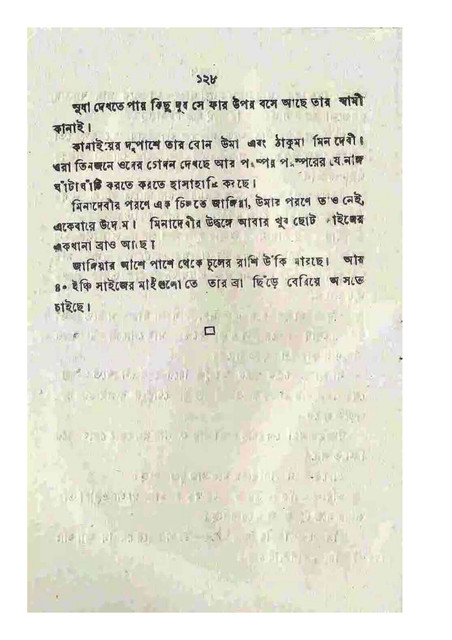 ১২৮
সুধা দেখতে পায় কিছু দূর সোফার উপর বসে আছে তার স্বামী
কানাই।
কানাইয়ের দুপাশে তার বোন উমা এবং ঠাকুমা মিনা দেবী।
ওরা তিনজনে ওদের চোদন দেখছে আর পরস্পর পরস্পরের যৌনাঙ্গ
ঘাঁটাঘাঁটি করতে করতে হাসাহাসি করছে।
মিনাদেবীর পরণে এক চিলতে জাঙ্গিয়া, উমার পরণে তাও নেই,
একেবারে উদোম। মিনাদেবীর উর্দ্ধাঙ্গে আবার খুব ছোট সাইজের
একখানা ব্রাও আছে।
জাঙ্গিয়ার আশে পাশে থেকে চুলের রাশি উঁকি মারছে। আর
৪০ ইঞ্চি সাইজের মাইগুলো তো তার ব্রা ছিঁড়ে বেরিয়ে আসতে
চাইছে।